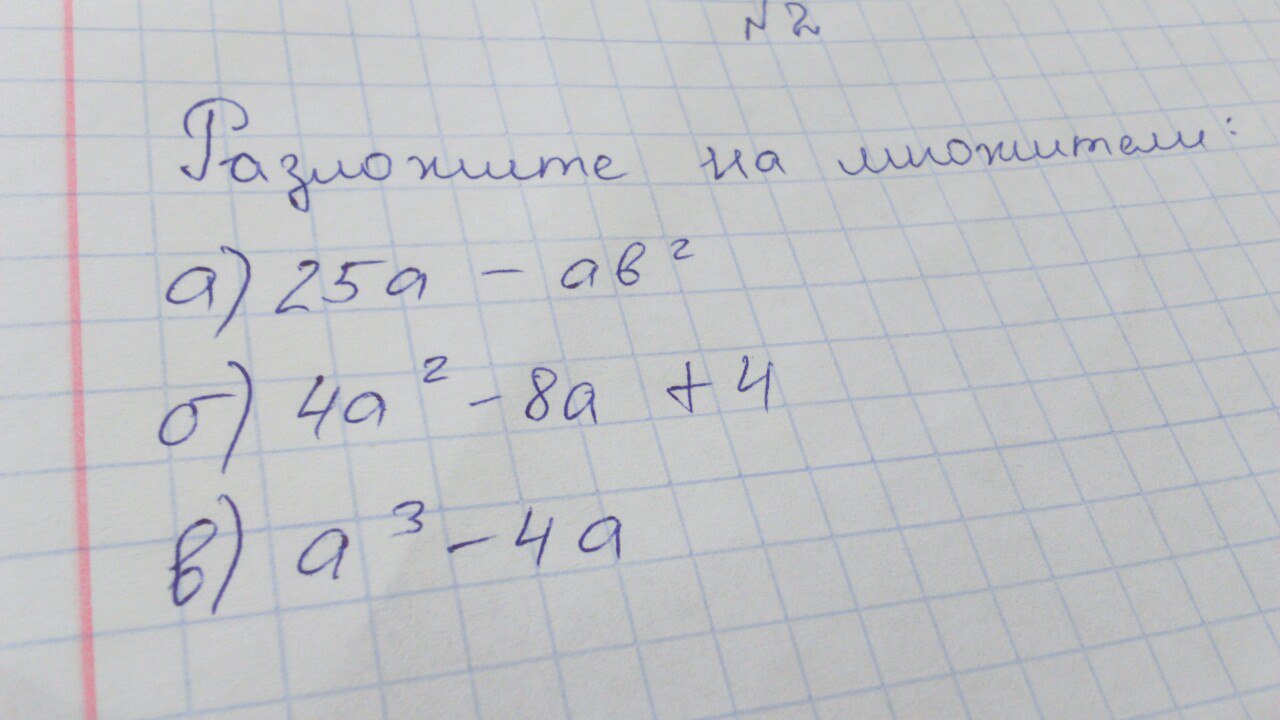 №2
Разложите на множители:
а) 25а - ав²
б) 4а² - 8а + 4
в) а³ - 4а